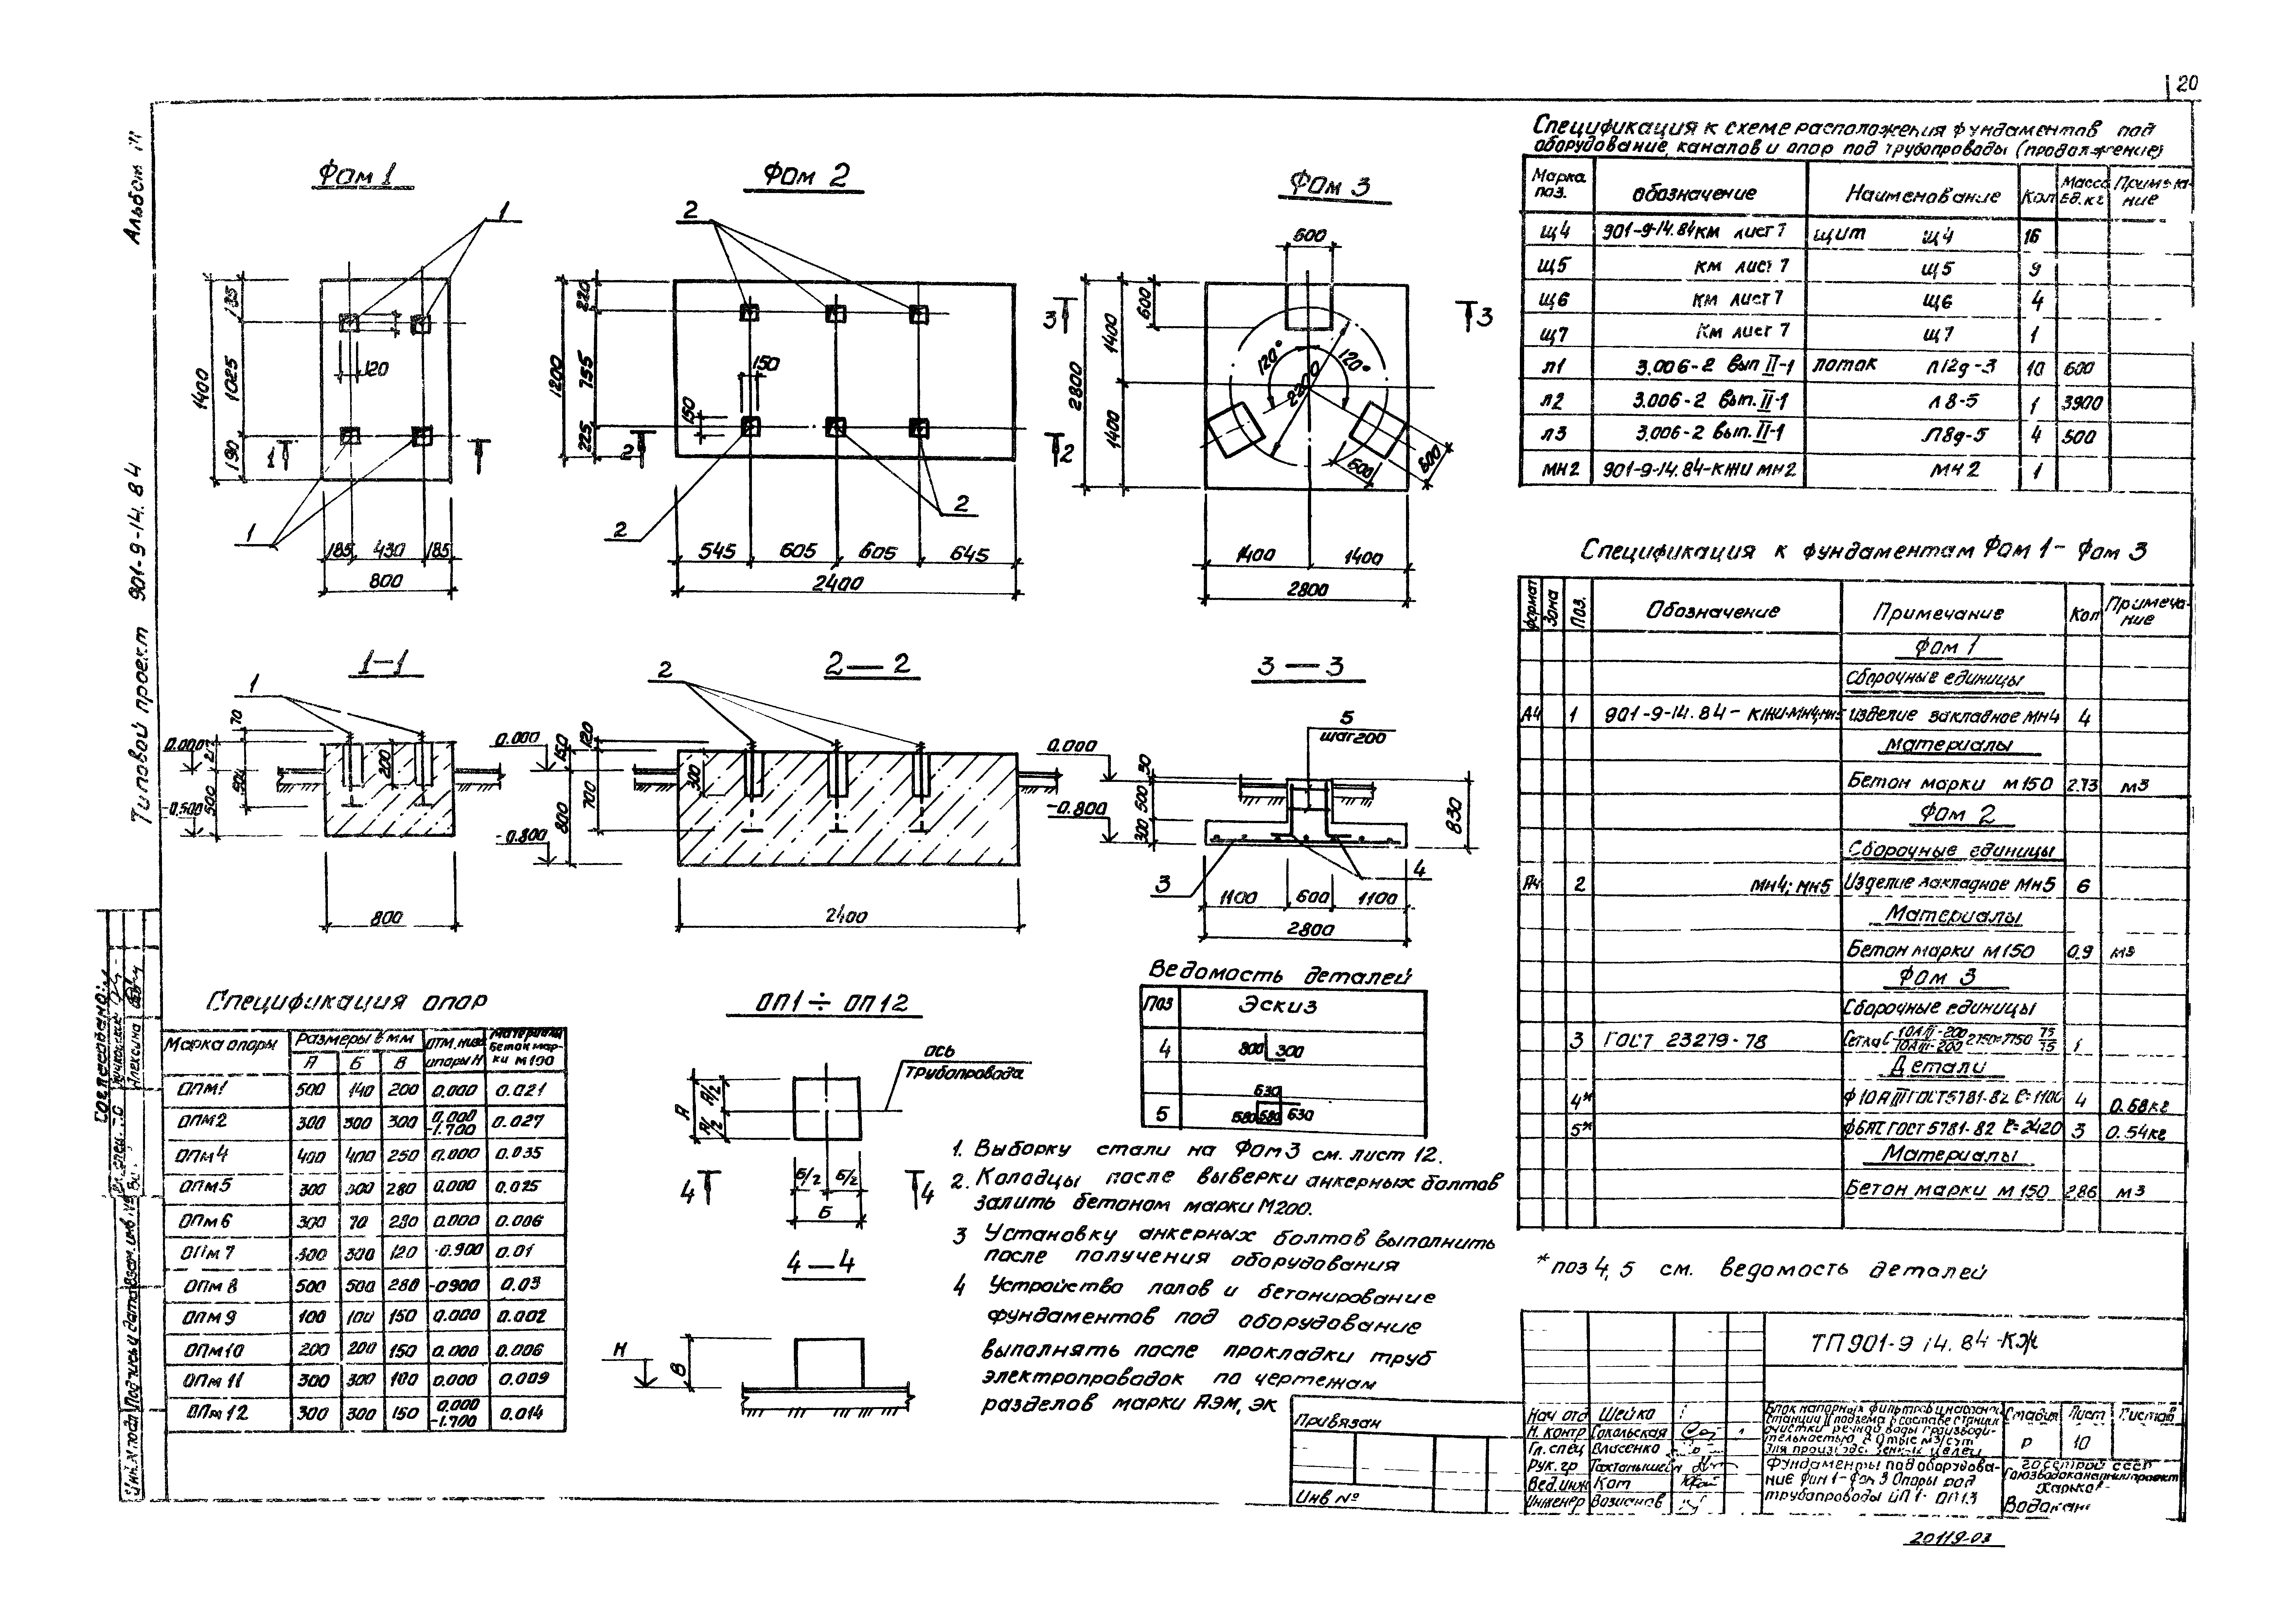 20
Альбом III
Типовой проект 901-9-14.84
Фом 1
1
135
1025
190
1400
120
1
1
185 430 185
800
Фом 2
2
220
755
225
1200
150
150
2
2
2
2
545 605 605 645
2400
Фом 3
600
600
3
3
1400
1400
2800
120°
120°
2200
600
600
1400 1400
2800
1-1
1
70
0.000
504
500
-0.500
200
800
2—2
2
0.000
150
120
300
700
800
-0.800
2400
3—3
5
шаг 200
0.000
30
500
300
-0.800
830
3
4
1100 600 1100
2800
Спецификация к схеме расположения фундаментов под
оборудование, каналов и опор под трубопроводы (продолжение)
Марка поз. Обозначение Наименование Кол Масса ед. кг Примечание
щ4 901-9-14.84 км лист 7 щит щ4 16
щ5 км лист 7 щ5 9
щ6 км лист 7 щ6 4
щ7 км лист 7 щ7 1
л1 3.006-2 вып II-1 лоток Л12д-3 10 600
л2 3.006-2 вып. II-1 Л8-5 1 3900
л3 3.006-2 вып. II-1 Л8д-5 4 500
мн2 901-9-14.84-КЖИ мн2 мн2 1
Спецификация к фундаментам Фом 1- Фом 3
Формат Зона Поз. Обозначение Примечание Кол Примечание
Фом 1
Сборочные единицы
А4 1 901-9-14.84-КЖИ-мн4; мн5 изделие закладное мн4 4
Материалы
Бетон марки м150 2.73 м3
Фом 2
Сборочные единицы
А4 2 мн4; мн5 Изделие закладное мн5 6
Материалы
Бетон марки м150 0.9 м3
Фом 3
Сборочные единицы
3 ГОСТ 23279-78 Сетка С 10АIII-200 10АIII-200 75 1
Детали
4* ф10АIII ГОСТ 5781-82 ℓ=1100 4 0.68кг
5* ГОСТ 5781-82 ℓ=2420 3 0.54кг
Материалы
Бетон марки м150 2.86 м3
* поз 4, 5 см. ведомость деталей
Спецификация опор
Марка опоры Размеры в мм отм. низа опоры Н материалы бетон марки м100
А Б В
ОПм1 500 140 200 0.000 0.021
ОПм2 300 300 300 0.000 -1.700 0.027
ОПм4 400 400 250 0.000 0.035
ОПм5 300 300 280 0.000 0.025
ОПм6 300 70 280 0.000 0.006
ОПм7 300 300 120 -0.900 0.01
ОПм8 500 500 280 -0900 0.03
ОПм9 100 100 150 0.000 0.002
ОПм10 200 200 150 0.000 0.006
ОПм11 300 300 100 0.000 0.009
ОПм12 300 300 150 0.000 -1.700 0.014
ОП1 ÷ ОП12
ось
трубопровода
А
А/2
А/2
4
4
Б/2 Б/2
Б
4—4
Н
В
Ведомость деталей
Поз Эскиз
4 800 300
5 630 580 580 630
1. Выборку стали на Фом3 см. лист 12.
2. Колодцы после выверки анкерных болтов
залить бетоном марки М200.
3 Установку анкерных болтов выполнить
после получения оборудования
4 Устройство полов и бетонирование
фундаментов под оборудование
выполнять после прокладки труб
электропроводок по чертежам
разделов марки АЭМ, ЭК
Привязан
Инв №
ТП 901-9 14.84-КЖ
Нач отд Шейко
Н. контр Сокольская
Гл. спец Власенко
Рук. гр
Вед. инж Кот
Инженер
Блок напорных фильтров и насосной
станции II подъема в составе станции
очистки речной воды производи-
тельностью тыс м3/сут
Стадия Лист Листов
Р 10
Фундаменты под оборудова-
ние Фом 1- Фом 3 Опоры под
трубопроводы ОП1- ОП13
Госстрой СССР
Союзводоканалниипроект
Согласовано:
Алексина
Инв. № подл Подпись и дата Взам. инв. №
20119-03